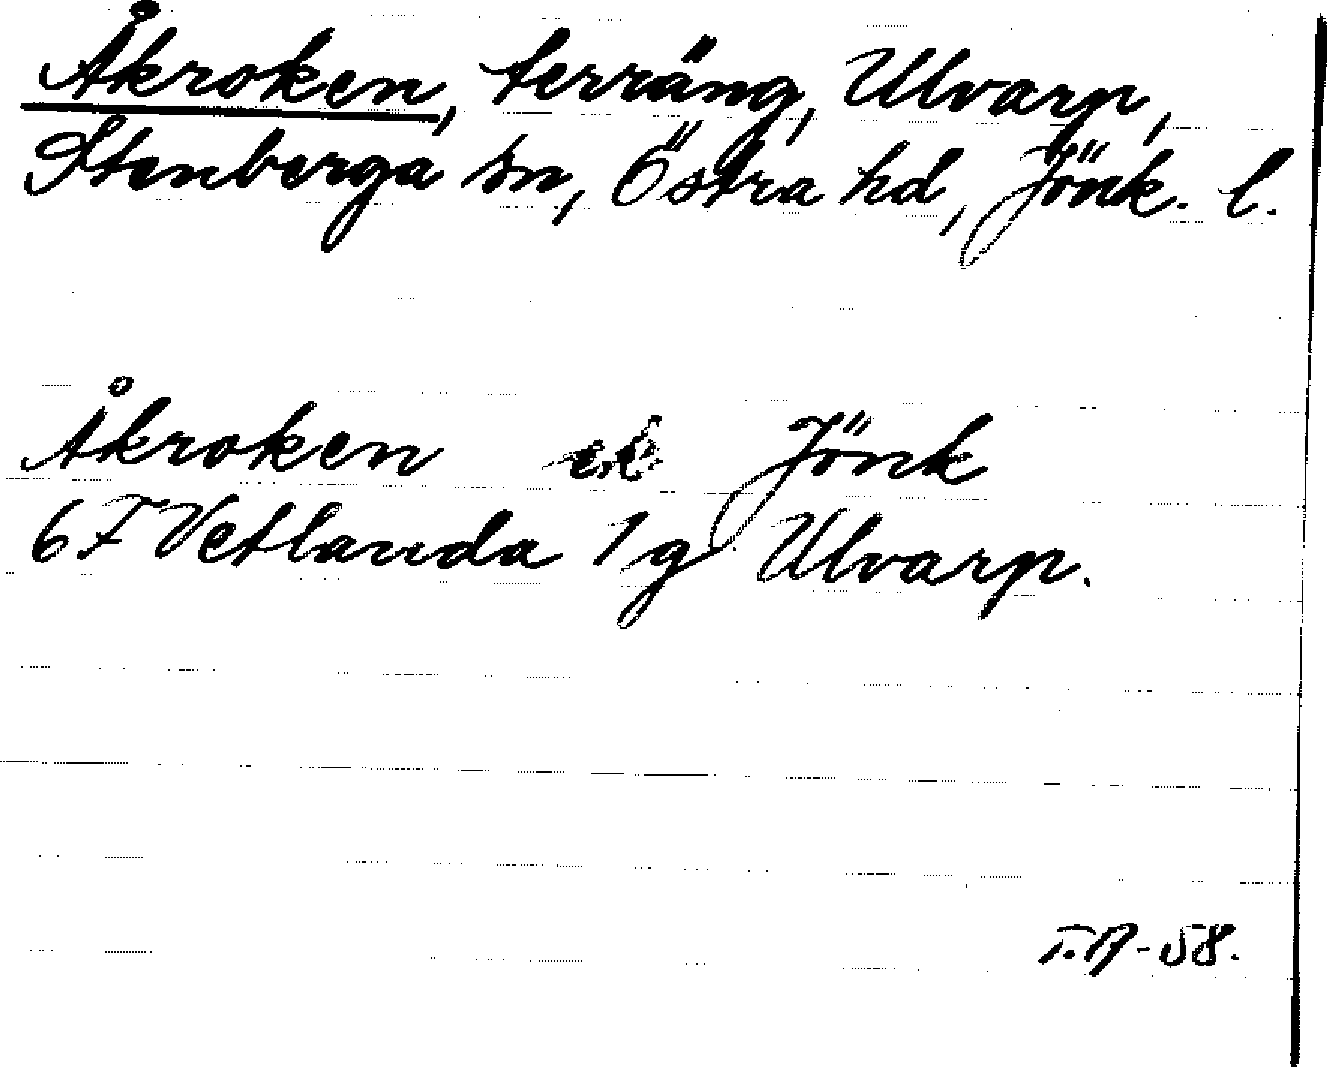 Åkroken, terräng, Ulvarp,
Stenberga sn, Östra hd, Jönk. l.
Åkroken ek Jönk
6 F Vetlanda 1 g Ulvarp.
-58.